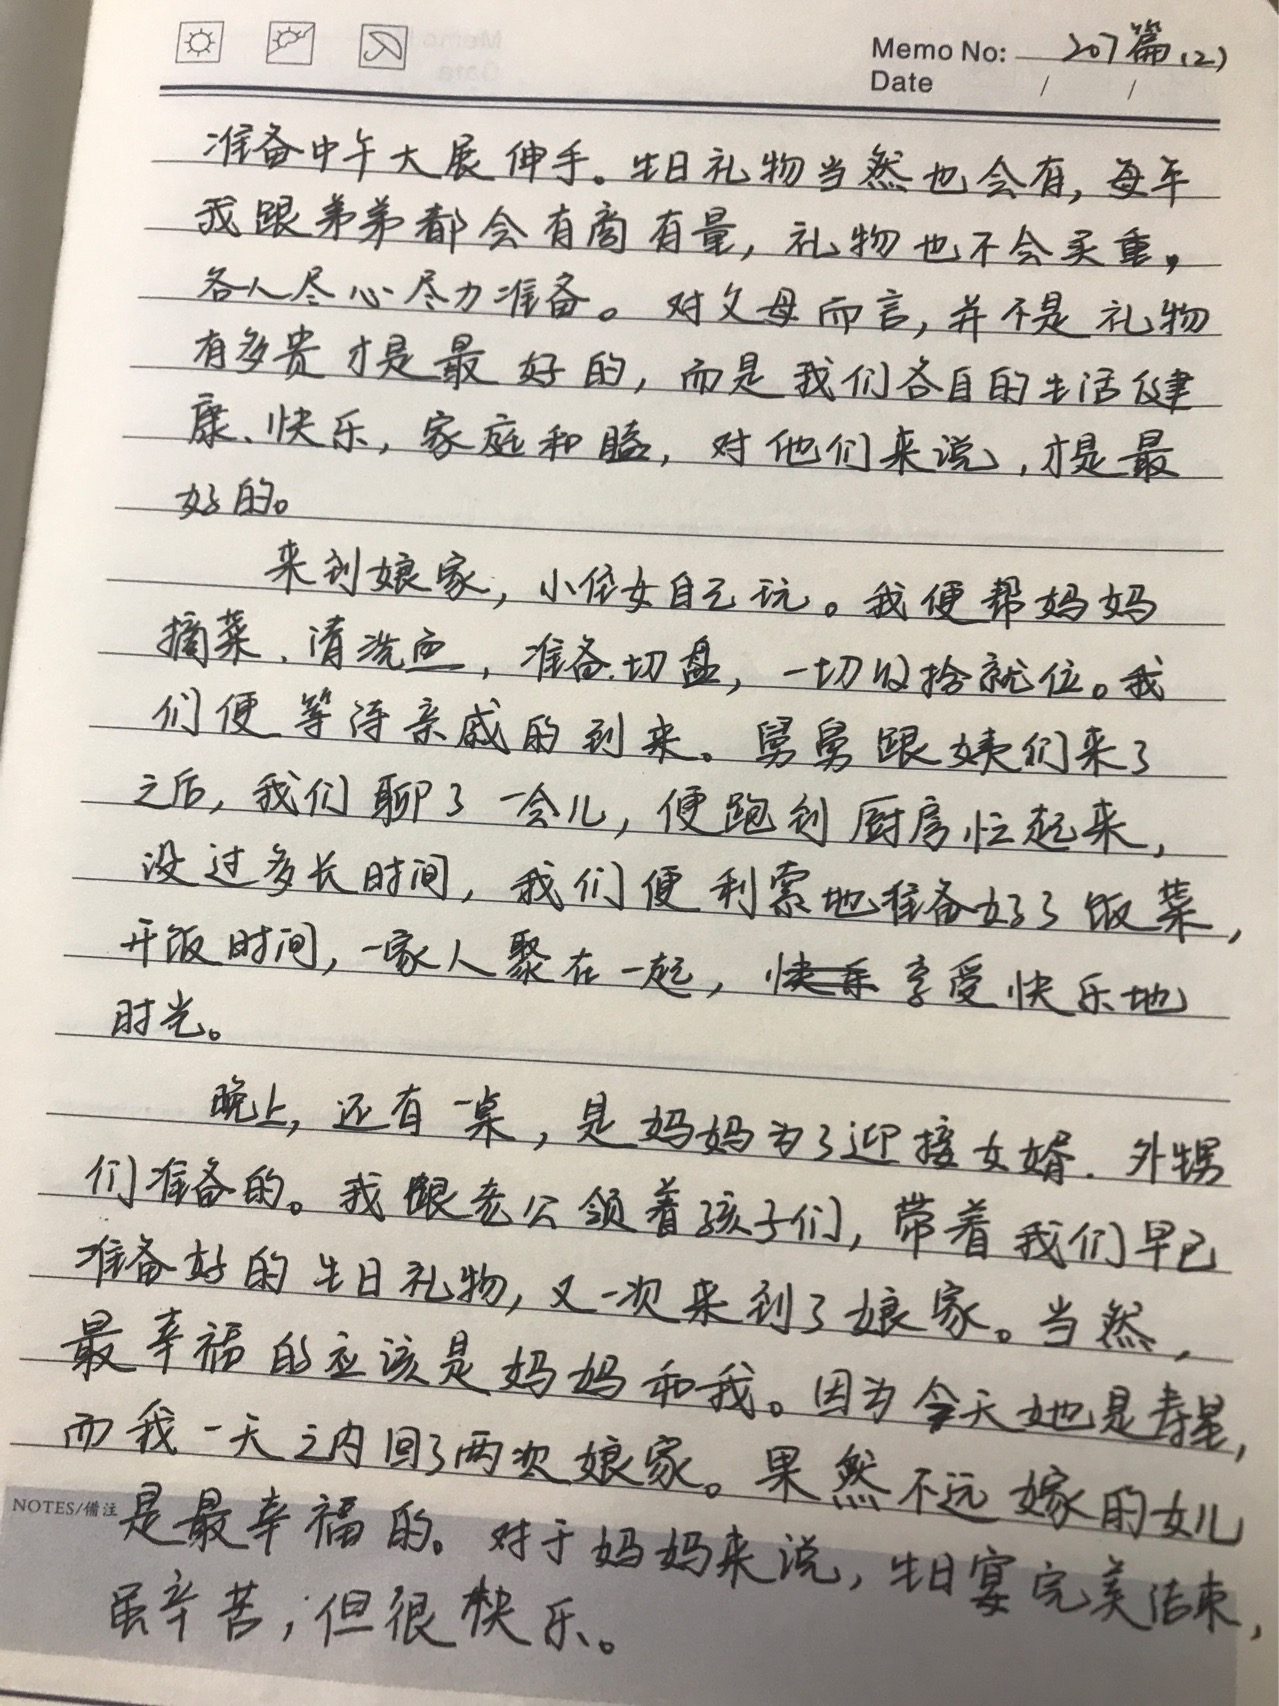 Memo No: 207篇(2)
Date / /
准备中午大展伸手。生日礼物当然也会有，每年
我跟弟弟都会有商有量，礼物也不会买重，
各人尽心尽力准备。对父母而言，并不是礼物
有多贵才是最好的，而是我们各自的生活健
康、快乐，家庭和睦，对他们来说，才是最
好的。
来到娘家，小侄女自己玩。我便帮妈妈
摘菜、清洗皿，准备切盘，一切收拾就位。我
们便等待亲戚的到来。舅舅跟姨们来了
之后，我们聊了一会儿，便跑到厨房忙起来，
没过多长时间，我们便利索地准备好了饭菜，
开饭时间，一家人聚在一起，享受快乐地
时光。
晚上，还有一桌，是妈妈为了迎接女婿、外甥
们准备的。我跟老公领着孩子们，带着我们早已
准备好的生日礼物，又一次来到了娘家。当然，
最幸福的应该是妈妈和我。因为今天她是寿星，
而我一天之内回了两次娘家。果然不远嫁的女儿
NOTES/備注 是最幸福的。对于妈妈来说，生日宴完美结束，
虽辛苦，但很快乐。